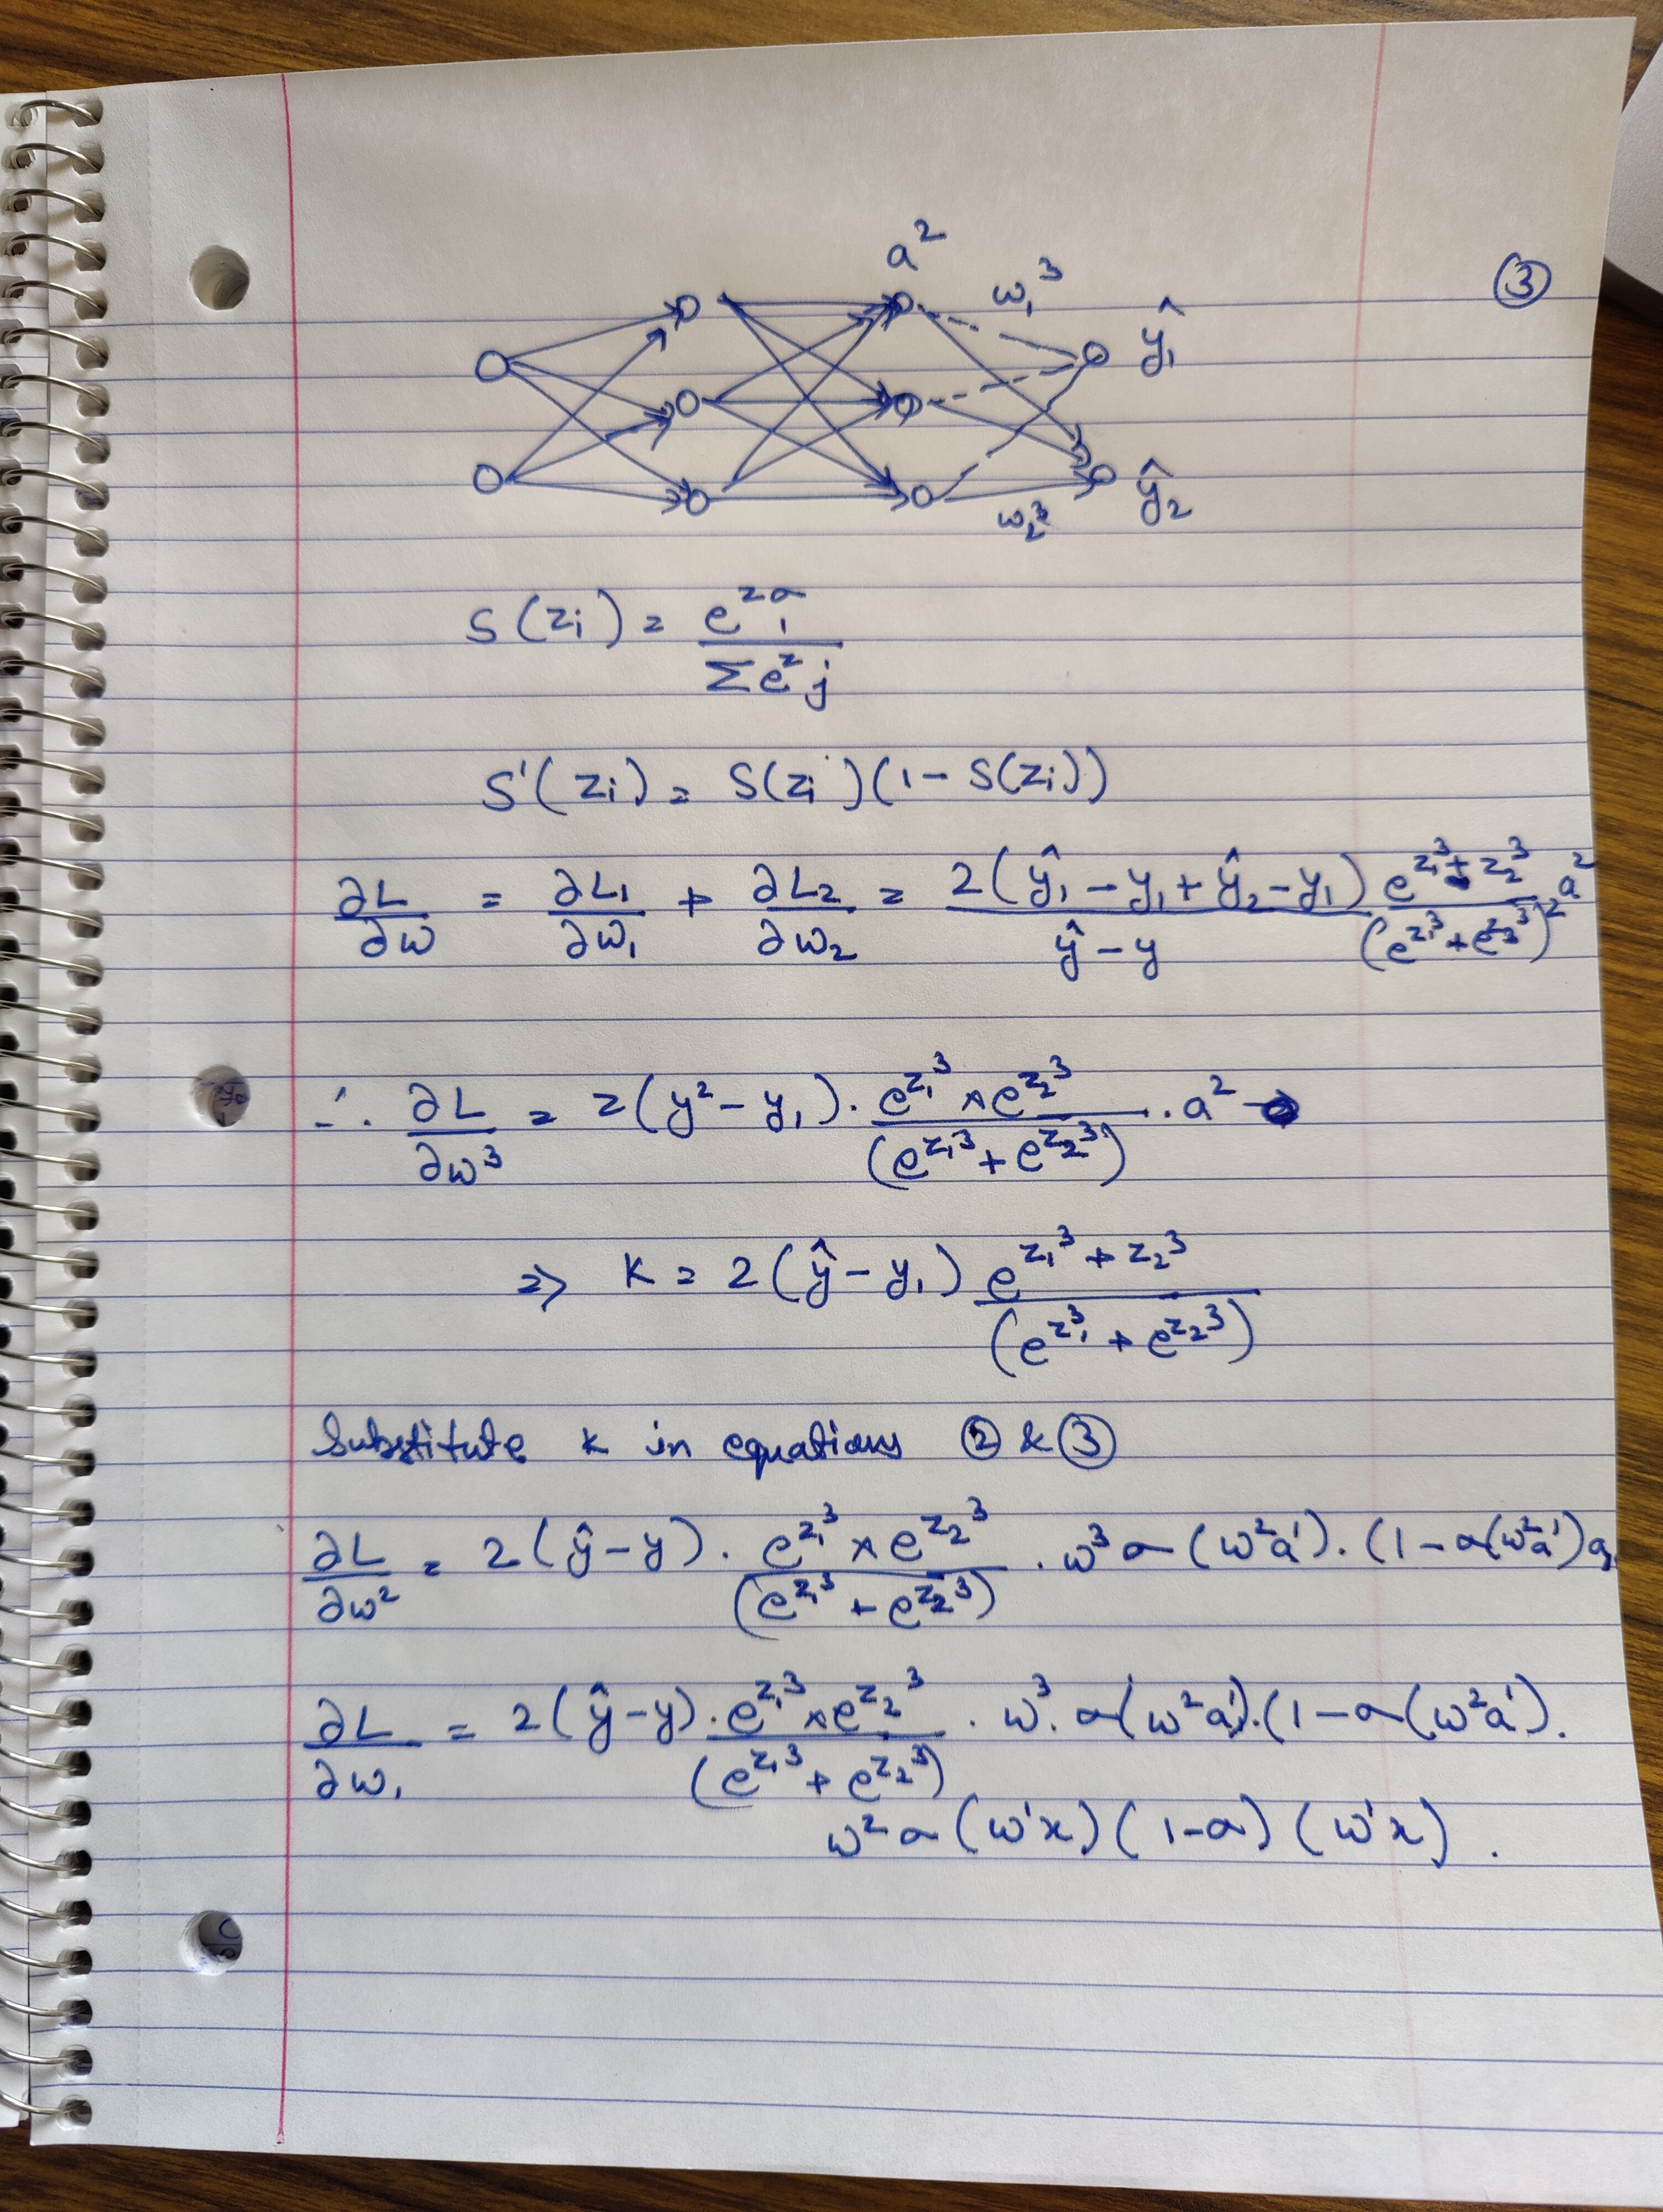 a²
③
w₁³
ŷ₁
ŷ₂
w₂³
S(zᵢ) = e^z σ ᵢ / Σ e^z j
S'(zᵢ) = S(zᵢ)(1 - S(zᵢ))
∂L/∂w = ∂L₁/∂w₁ + ∂L₂/∂w₂ = 2(ŷ₁ - y₁ + ŷ₂ - y₁)/(ŷ - y) e^(z₁³ + z₂³)/(e^(z₁³) + e^(z₂³))² a²
∴ ∂L/∂w³ = 2(y² - y₁) . e^(z₁³) × e^(z₂³)/(e^(z₁³) + e^(z₂³)) . a²
=> K = 2(ŷ - y₁) e^(z₁³ + z₂³)/(e^(z₁³) + e^(z₂³))
Substitute K in equations ② & ③
∂L/∂w² = 2(ŷ - y) . e^(z₁³) × e^(z₂³)/(e^(z₁³) + e^(z₂³)) . w³ σ(w²a¹) . (1 - σ(w²a¹) a₁
∂L/∂w₁ = 2(ŷ - y) . e^(z₁³) × e^(z₂³)/(e^(z₁³) + e^(z₂³)) . w³ . σ(w²a¹) . (1 - σ(w²a¹) .
w² σ(w¹x)(1 - σ)(w¹x) .